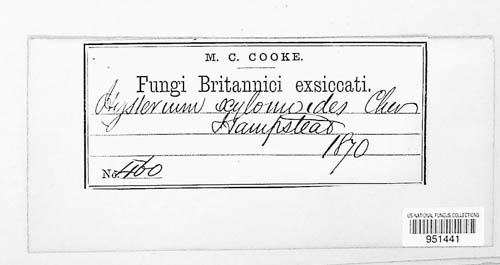 M. C. COOKE.
Fungi Britannici exsiccati.
Hysterium xylomoides Chev
Hampstead
1870
No. 460
US NATIONAL FUNGUS COLLECTIONS
951441